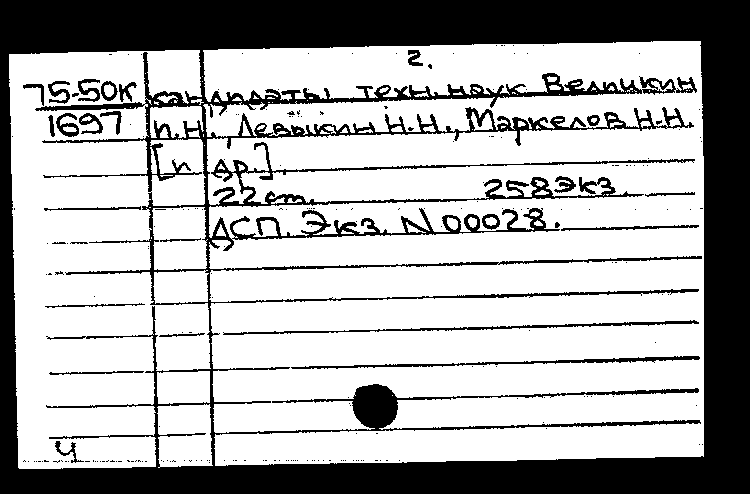 2.
75-50К кандидаты техн. наук Великин
1697 И.Н., Левыкин Н.Н., Маркелов Н.Н.
[и др.].
22 ст. 258 экз.
ДСП. Экз. N 00028.
Ч